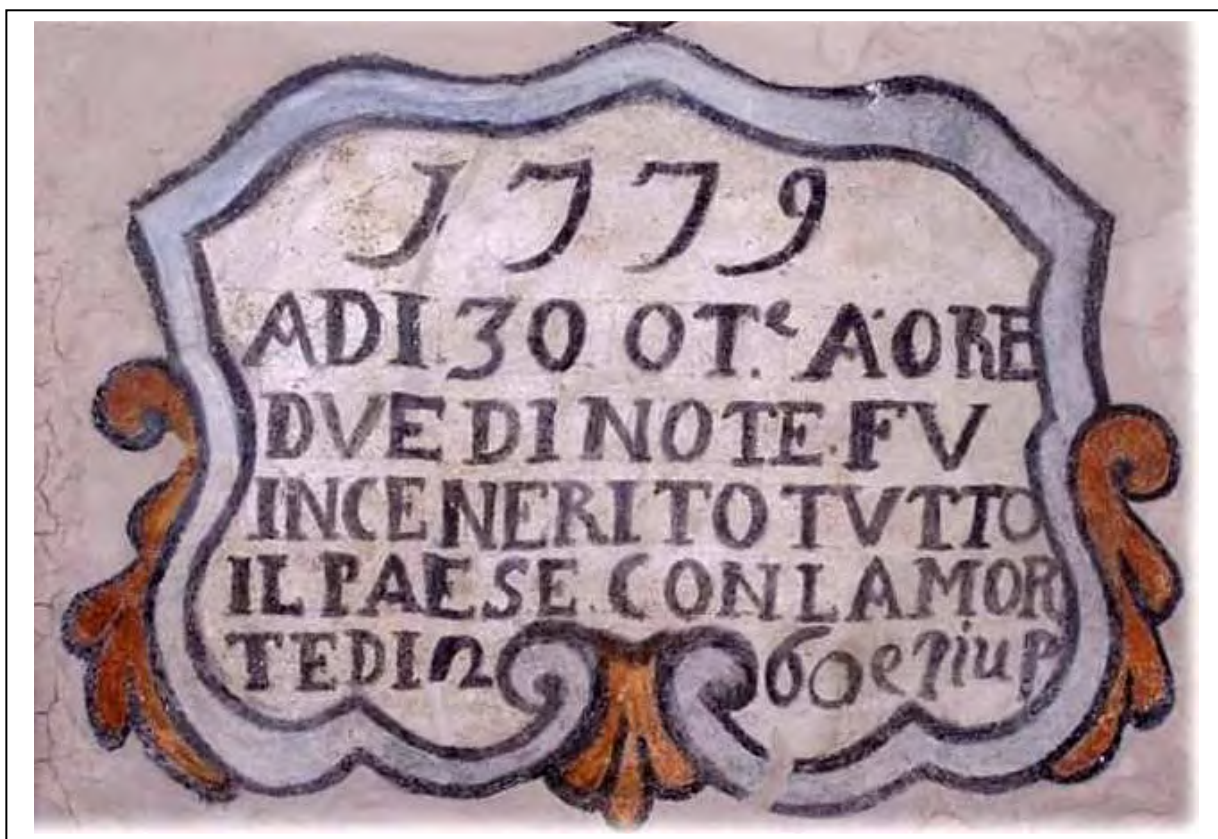 1779
ADI 30 OT.e A·ORE
DVE DI NOTE·FV
INCENERITO TVTTO
IL PAESE·CON LA MOR
TE DI n 60 e piu p